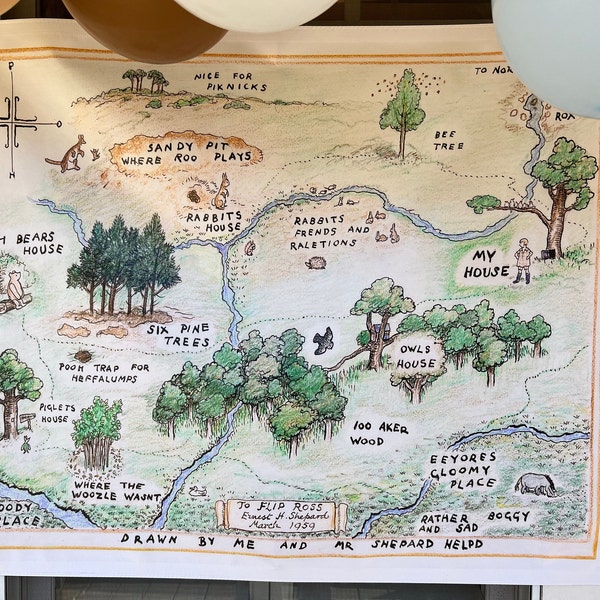 P
TO NOR
NICE FOR
PIKNICKS
ROX
BEE
TREE
SANDY PIT
WHERE ROO PLAYS
RABBITS
HOUSE
RABBITS
FRENDS AND
RALETIONS
H BEARS
HOUSE
MY
HOUSE
SIX PINE
TREES
OWLS
HOUSE
POOH TRAP FOR
HEFFALUMPS
PIGLETS
HOUSE
100 AKER
WOOD
EEYORES
GLOOMY
PLACE
WHERE THE
WOOZLE WASNT
OODY
PLACE
To FLIP ROSS
Ernest H. Shepard
March 1959
RATHER BOGGY
AND SAD
DRAWN BY ME AND MR SHEPARD HELPD